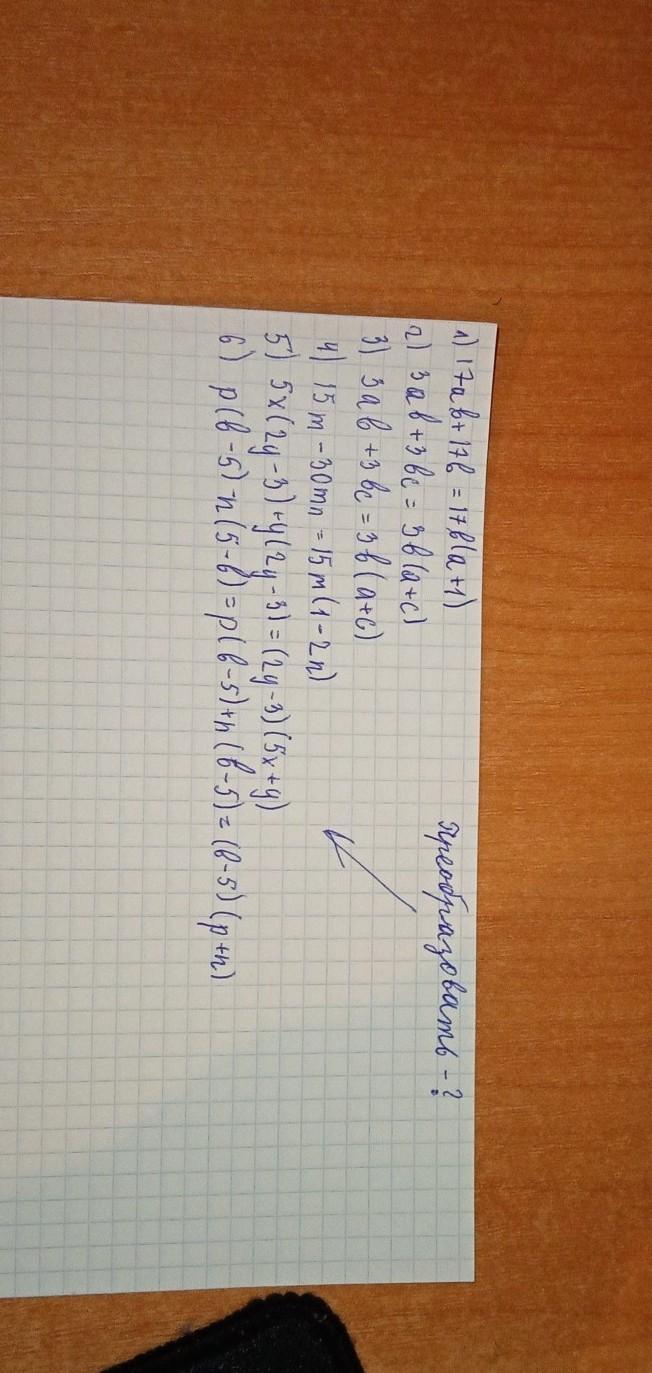 1) 17ab+17b = 17b(a+1)
Преобразовать - ?
2) 3ab+3bc = 3b(a+c)
3) 3ab+3bc = 3b(a+c)
4) 15m-30mn = 15m(1-2n)
5) 5x(2y-3)+y(2y-3) = (2y-3)(5x+y)
6) p(b-5)-n(5-b) = p(b-5)+n(b-5) = (b-5)(p+n)